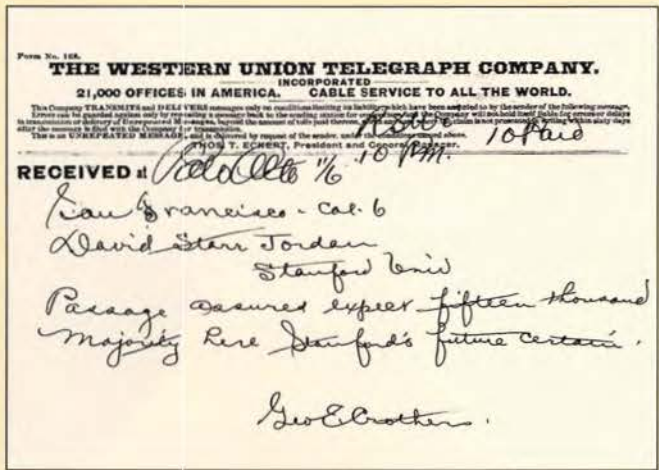 Form No. 168.
THE WESTERN UNION TELEGRAPH COMPANY.
INCORPORATED
21,000 OFFICES IN AMERICA. CABLE SERVICE TO ALL THE WORLD.
This Company TRANSMITS and DELIVERS messages only on conditions limiting its liability, which have been assented to by the sender of the following message.
Errors can be guarded against only by repeating a message back to the sending station for comparison, and the Company will not hold itself liable for errors or delays
in transmission or delivery of Unrepeated Messages, beyond the amount of tolls paid thereon, nor in any case where the claim is not presented in writing within sixty days
after the message is filed with the Company for transmission.
This is an UNREPEATED MESSAGE, and is delivered by request of the sender, under the conditions named above.
10 Paid
THOS. T. ECKERT, President and General Manager.
RECEIVED at Palo Alto 11/6 10 PM.
San Francisco - Cal. 6
David Starr Jordan
Stanford Univ
Passage assured expect fifteen thousand
Majority here Stanford's future certain.
Geo E Crothers.